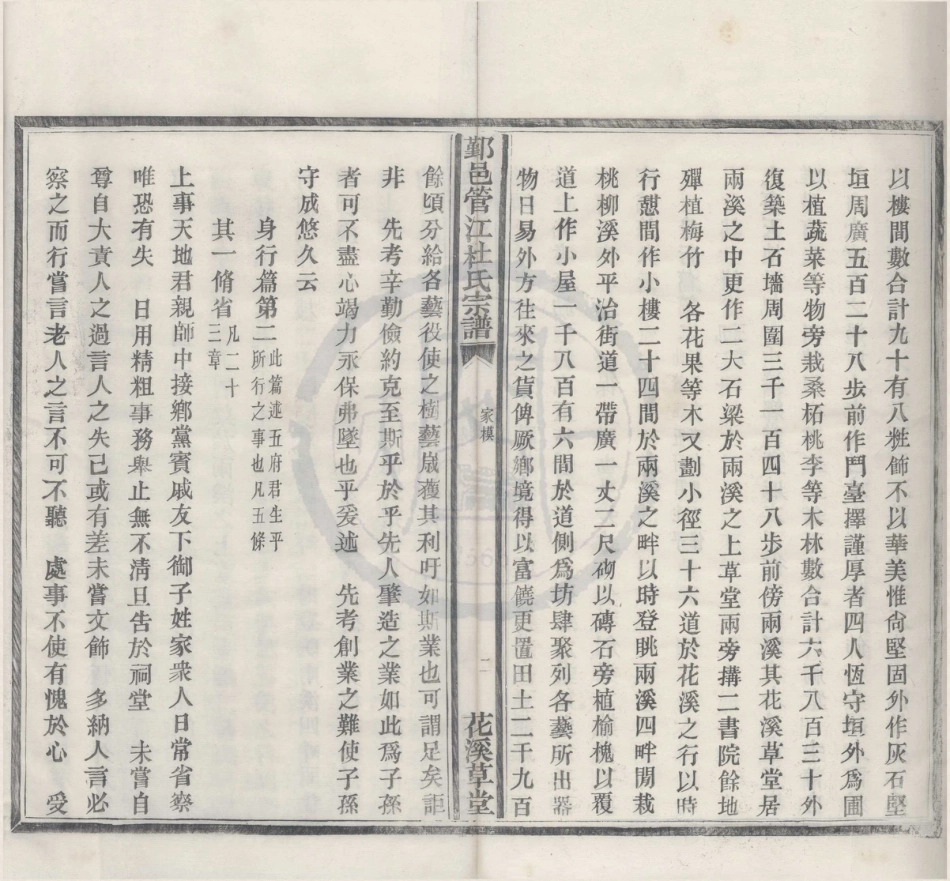 以樓間數合計九十有八粧飾不以華美惟尙堅固外作灰石堅
垣周廣五百二十八步前作門臺擇謹厚者四人恆守垣外爲圃
以植蔬菜等物旁栽桑柘桃李等木林數合計六千八百三十外
復築土石墻周圍三千一百四十八步前傍兩溪其花溪草堂居
兩溪之中更作二大石梁於兩溪之上草堂兩旁搆二書院餘地
殫植梅竹 各花果等木又劃小徑三十六道於花溪之行以時
行憇間作小樓二十四間於兩溪之畔以時登眺兩溪四畔閒栽
桃柳溪外平治街道一帶廣一丈二尺砌以磚石旁植榆槐以覆
道上作小屋一千八百有六間於道側爲坊肆聚列各藝所出器
物日易外方往來之貨俾厥鄉境得以富饒更置田土二千九百
鄞邑管江杜氏宗譜 家模 二 花溪草堂
餘頃分給各藝役使之樹藝歲獲其利吁如斯業也可謂足矣詎
非 先考辛勤儉約克至斯乎於乎先人肇造之業如此爲子孫
者可不盡心竭力永保弗墜也乎爰述 先考創業之難使子孫
守成悠久云
身行篇第二此篇述五府君生平所行之事也凡五條
其一脩省凡二十三章
上事天地君親師中接鄉黨賓戚友下御子姓家衆人日常省察
唯恐有失 日用精粗事務舉止無不清旦告於祠堂 未嘗自
尊自大責人之過言人之失己或有差未嘗文飾 多納人言必
察之而行嘗言老人之言不可不聽 處事不使有愧於心 受